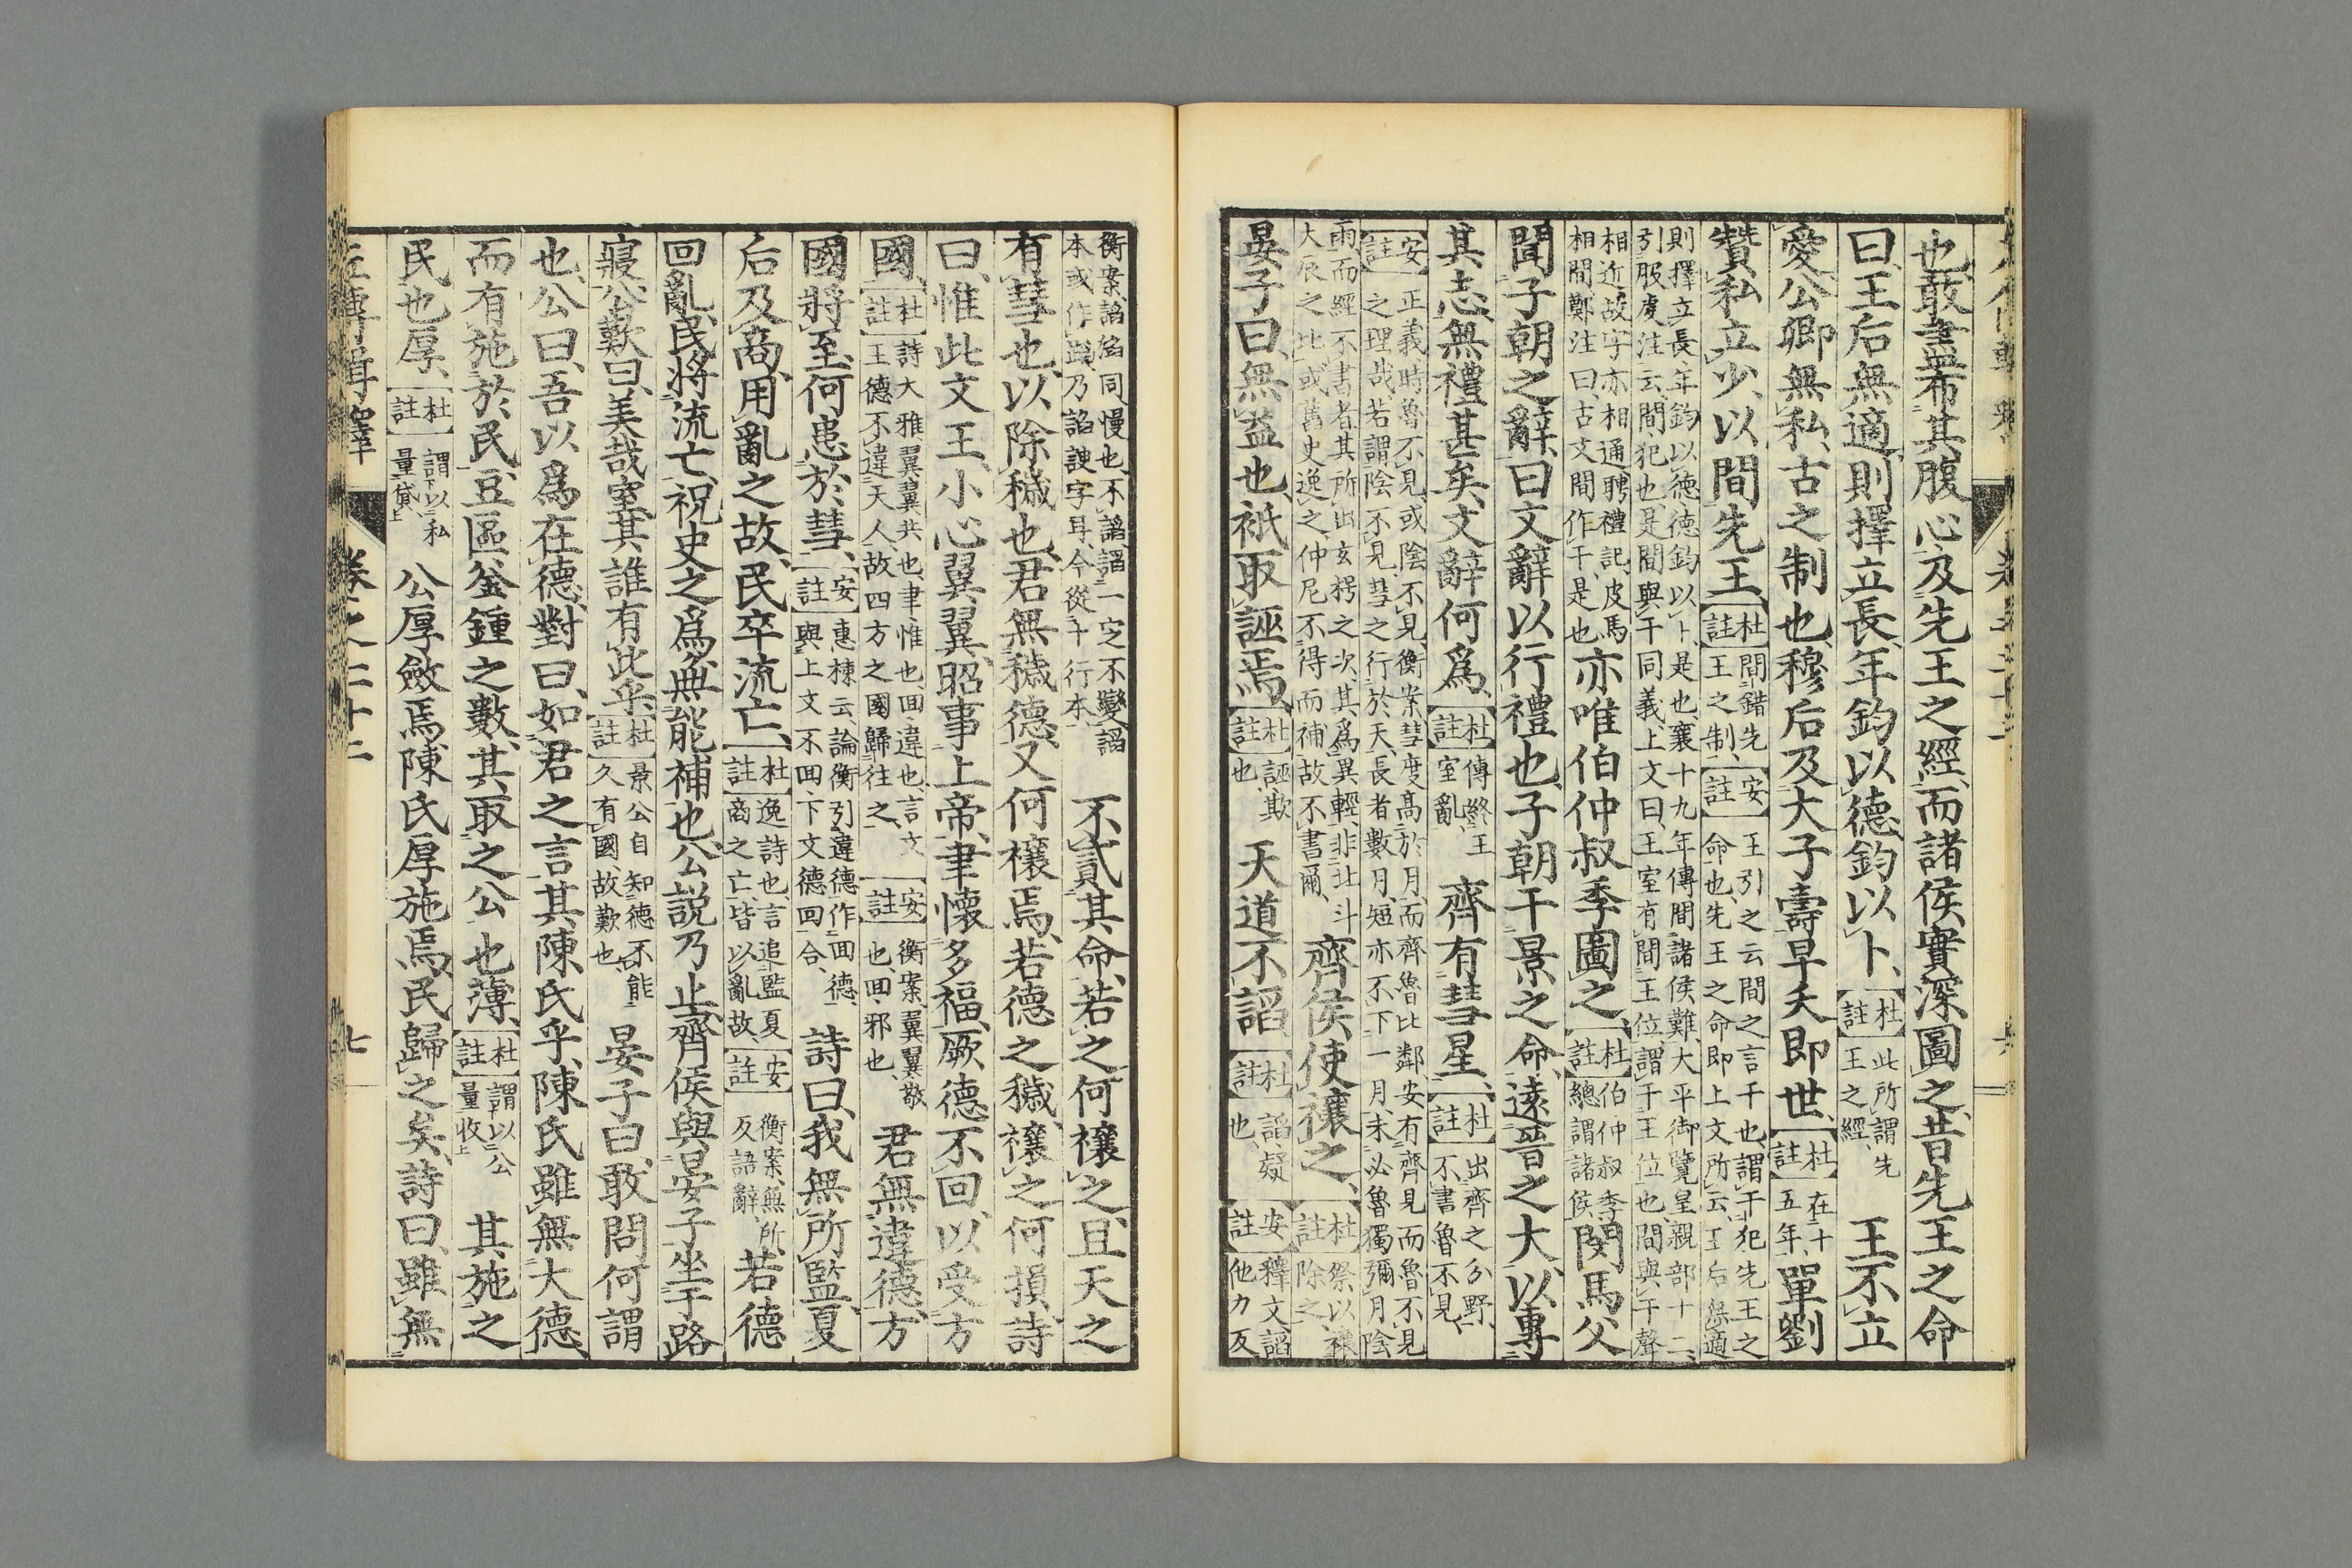 也、敢盡布其腹心、及先王之經、而諸侯實深圖之、昔先王之命
曰、王后無適、則擇立長、年鈞以德、德鈞以卜、【杜註】此所謂先王之經、王不立
愛、公卿無私、古之制也、穆后及大子壽早夭即世、【杜註】在十五年、單劉
贊私立少、以間先王、【杜註】間錯先王之制、【安註】王引之云、間之言干也、謂干犯先王之命也、先王之命、即上文所云、王后無適
則擇立長、年鈞以德、德鈞以卜、是也、襄十九年傳、間諸侯難、大平御覽皇親部十二、引服虔注云、間、犯也、是間與干同義、上文曰、王室有間王位、謂干王位也、間與干聲
相近、故字亦相通、聘禮記、皮馬相間、鄭注曰、古文間作干、是也、亦唯伯仲叔季圖之、【杜註】伯仲叔季、總謂諸侯、閔馬父
聞子朝之辭、曰文辭以行禮也、子朝干景之命、遠晉之大、以專
其志、無禮甚矣、文辭何爲、【杜註】傳終王室亂、齊有彗星、【杜註】出齊之分野、不書魯不見、
【安註】正義、時魯不見、或陰不見、衡案、彗度高於月、而齊魯比鄰、安有齊見而魯不見之理哉、若謂陰不見、彗之行於天、長者數月、短亦不下一月、未必魯獨彌月陰
雨、而經不書者、其所出玄枵之次、其爲異輕、非北斗大辰之比、或舊史逸之、仲尼不得而補、故不書爾、齊侯使禳之、【杜註】祭以禳除之、
晏子曰、無益也、祇取誣焉、【杜註】誣、欺也、天道不謟、【杜註】謟、疑也、【安註】釋文、謟他刀反
衡案、謟慆同、慢也、不謟謟二一定不變、謟本或作諂、乃諂諛字耳、今從十行本、不貳其命、若之何禳之、且天之
有彗也、以除穢也、君無穢德、又何禳焉、若德之穢、禳之何損、詩
曰、惟此文王、小心翼翼、昭事上帝、聿懷多福、厥德不回、以受方
國、【杜註】詩大雅、翼翼共也、聿、惟也、回、違也、言文王德不違天人、故四方之國歸往之、【安註】衡案、翼翼敬也、回、邪也、君無違德、方
國將至、何患於彗、【安註】惠棟云、論衡引違德作回德、與上文不回、下文德回合、詩曰、我無所監、夏
后及商、用亂之故、民卒流亡、【杜註】逸詩也、言追監夏商之亡、皆以亂故、【安註】衡案、無所、反語辭、若德
回亂、民將流亡、祝史之爲、無能補也、公説乃止、齊侯與晏子坐于路
寢、公歎曰、美哉室、其誰有此乎、【杜註】景公自知德不能久有國、故歎也、晏子曰、敢問何謂
也、公曰、吾以爲在德、對曰、如君之言、其陳氏乎、陳氏雖無大德、
而有施於民、豆區釜鍾之數、其取之公也薄、【杜註】謂以公量收、其施之
民也厚、【杜註】謂以私量貸、公厚斂焉、陳氏厚施焉、民歸之矣、詩曰、雖無
左傳輯釋 卷之二十二 七